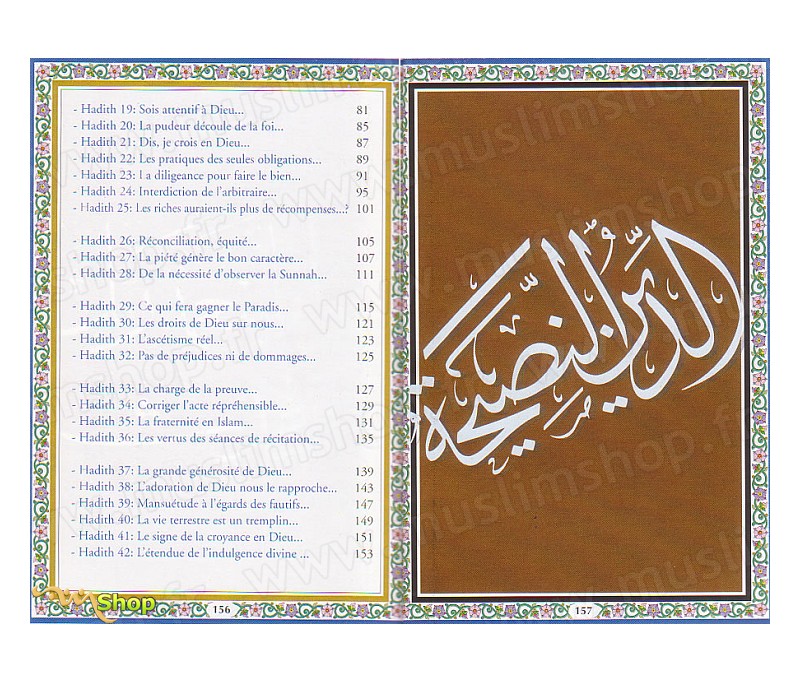 - Hadith 19: Sois attentif à Dieu... 81
- Hadith 20: La pudeur découle de la foi... 85
- Hadith 21: Dis, je crois en Dieu... 87
- Hadith 22: Les pratiques des seules obligations... 89
- Hadith 23: La diligeance pour faire le bien... 91
- Hadith 24: Interdiction de l'arbitraire... 95
- Hadith 25: Les riches auraient-ils plus de récompenses...? 101
- Hadith 26: Réconciliation, équité... 105
- Hadith 27: La piété génère le bon caractère... 107
- Hadith 28: De la nécessité d'observer la Sunnah... 111
- Hadith 29: Ce qui fera gagner le Paradis... 115
- Hadith 30: Les droits de Dieu sur nous... 121
- Hadith 31: L'ascétisme réel... 123
- Hadith 32: Pas de préjudices ni de dommages... 125
- Hadith 33: La charge de la preuve... 127
- Hadith 34: Corriger l'acte répréhensible... 129
- Hadith 35: La fraternité en Islam... 131
- Hadith 36: Les vertus des séances de récitation... 135
- Hadith 37: La grande générosité de Dieu... 139
- Hadith 38: L'adoration de Dieu nous le rapproche... 143
- Hadith 39: Mansuétude à l'égards des fautifs... 147
- Hadith 40: La vie terrestre est un tremplin... 149
- Hadith 41: Le signe de la croyance en Dieu... 151
- Hadith 42: L'étendue de l'indulgence divine ... 153
156
الدين النصيحة
157
Shop
www.muslimshop.fr